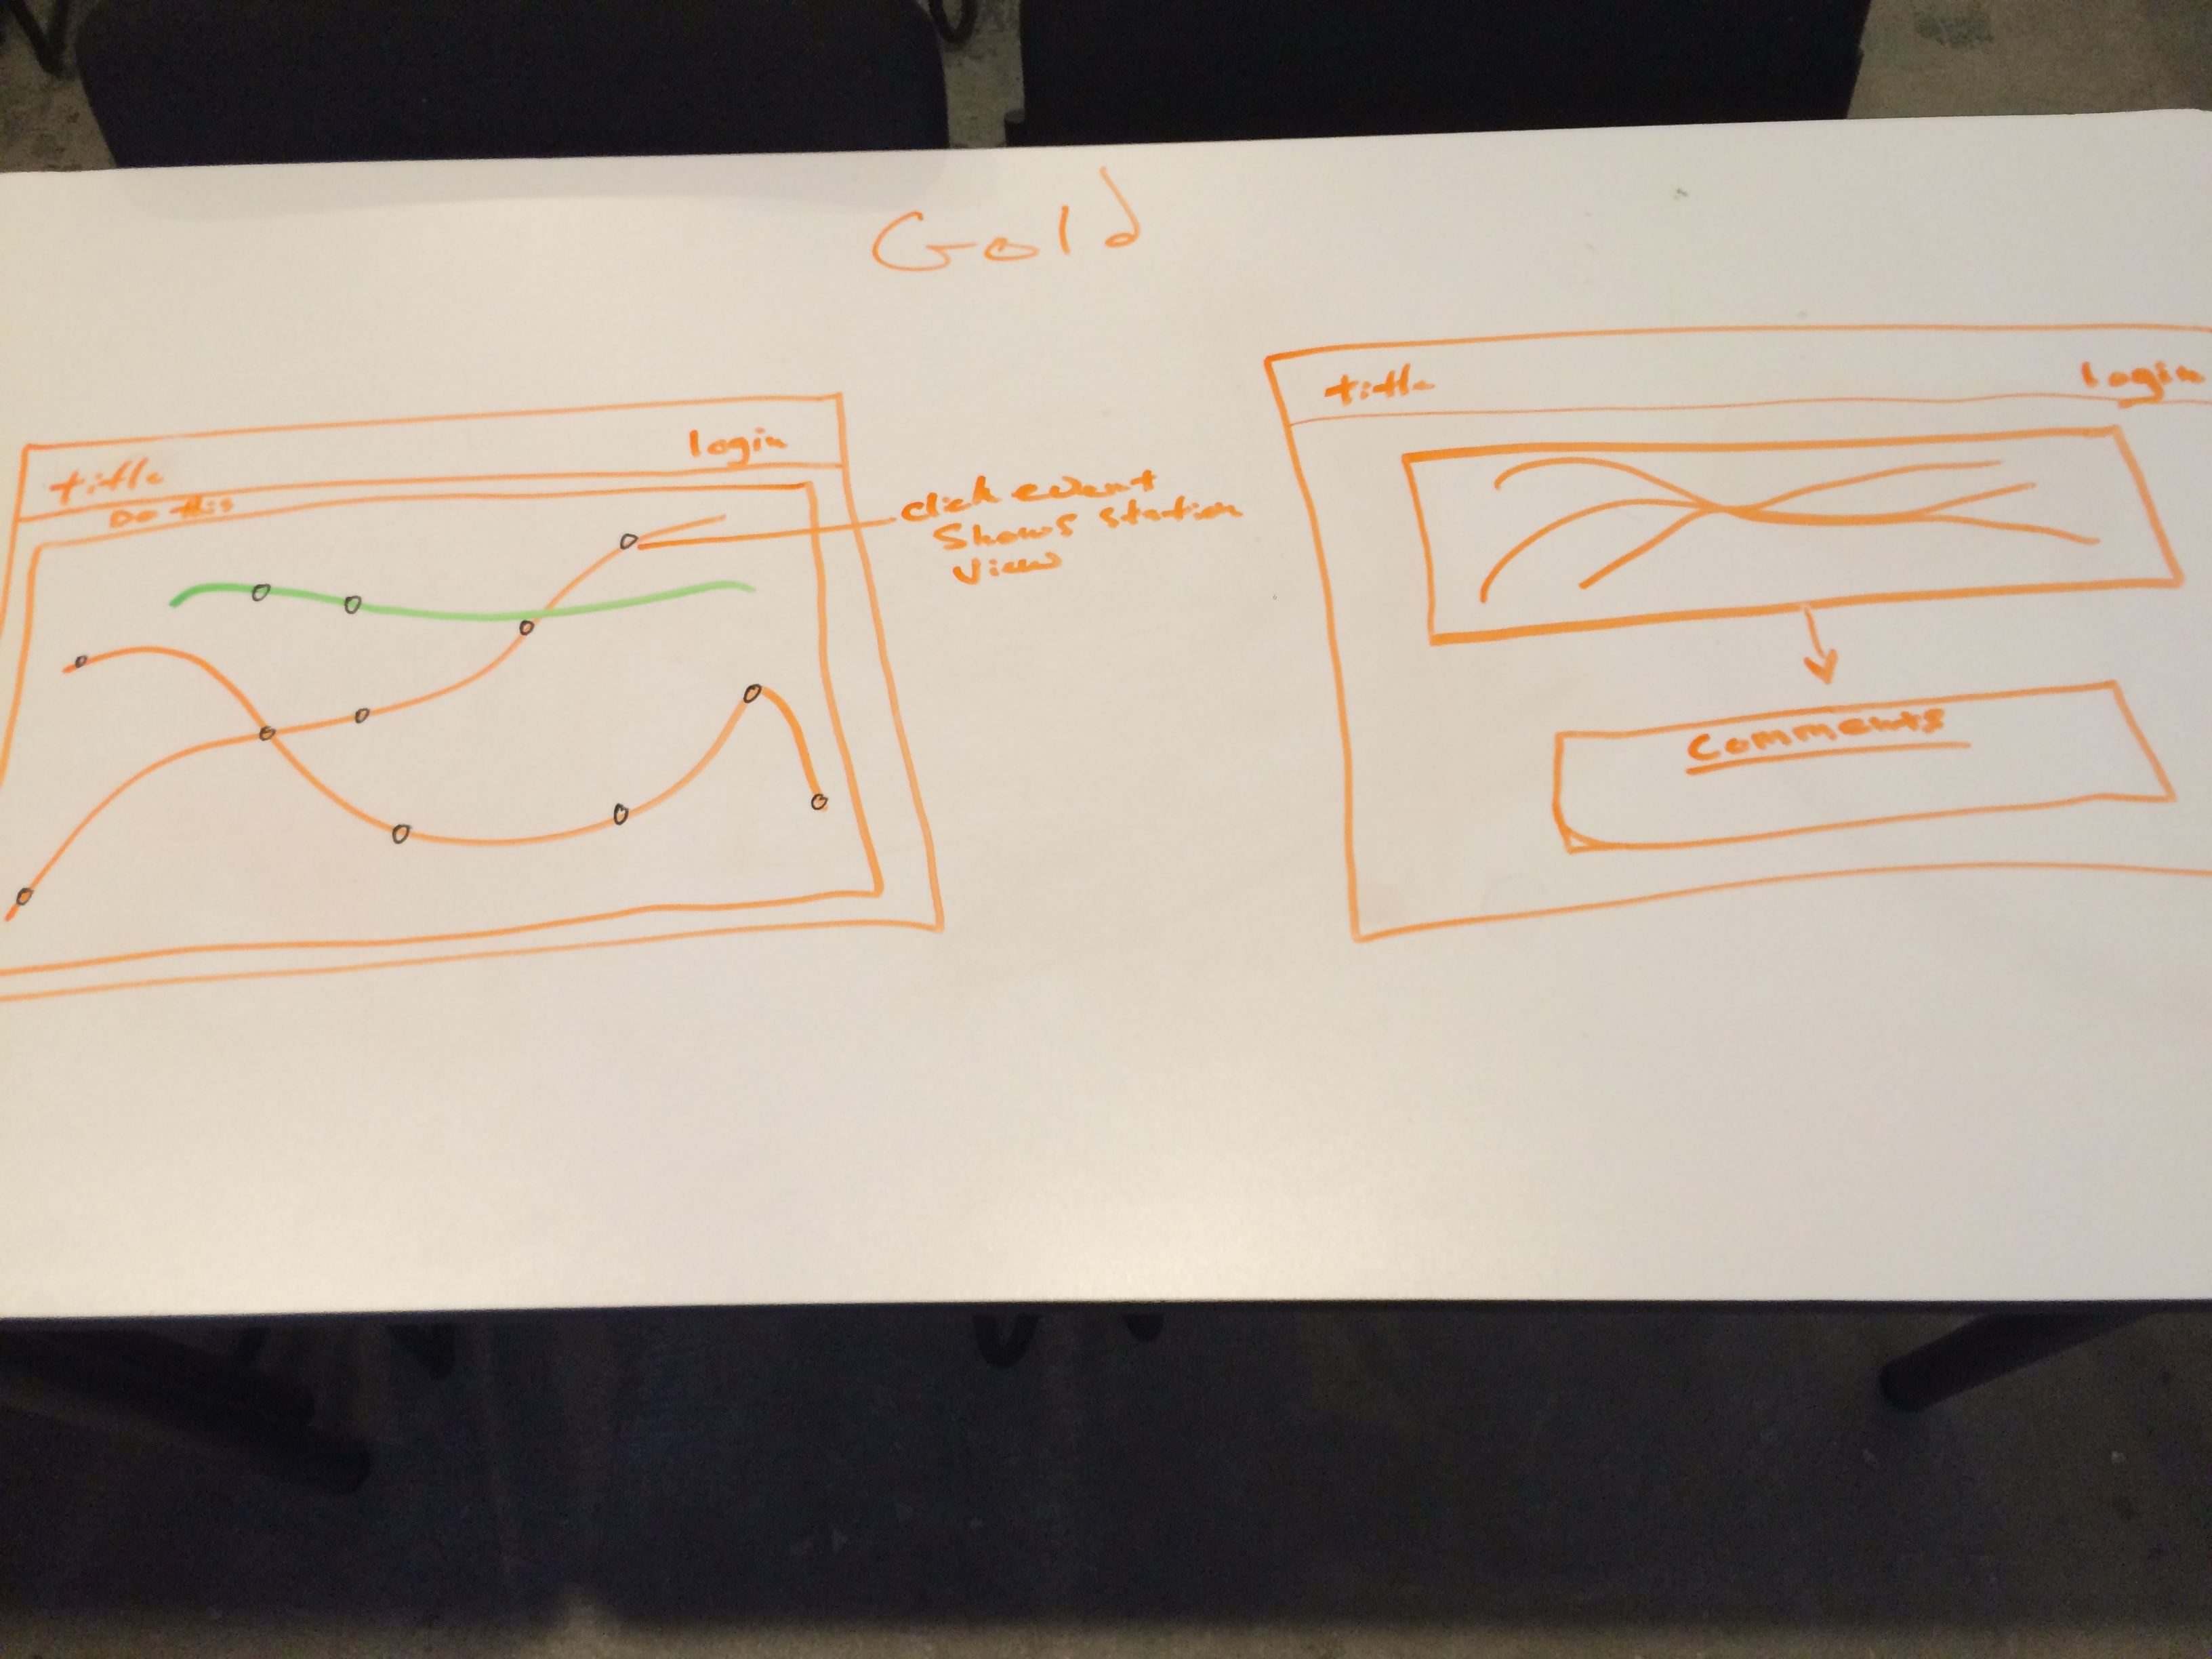 Gold
title
login
Do this
click event
Shows station
view
title
login
Comments